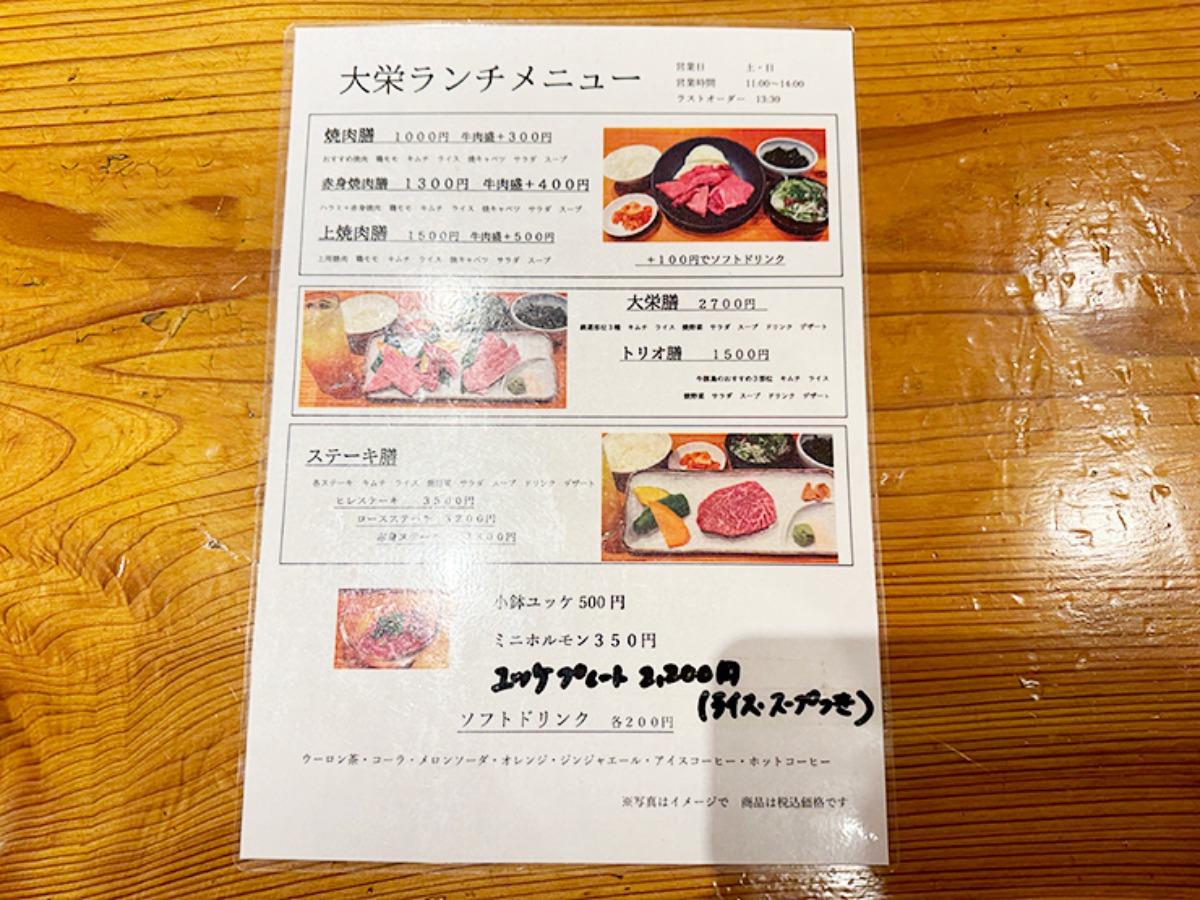 大栄ランチメニュー
営業日 土・日
営業時間 11:00～14:00
ラストオーダー 13:30
焼肉膳 1000円 牛肉盛+300円
おすすめ焼肉 鶏モモ キムチ ライス 焼キャベツ サラダ スープ
赤身焼肉膳 1300円 牛肉盛+400円
ハラミ+赤身焼肉 鶏モモ キムチ ライス 焼キャベツ サラダ スープ
上焼肉膳 1500円 牛肉盛+500円
上焼肉 鶏モモ キムチ ライス 焼キャベツ サラダ スープ
+100円でソフトドリンク
大栄膳 2700円
厳選部位3種 キムチ ライス 焼野菜 サラダ スープ ドリンク デザート
トリオ膳 1500円
牛豚鶏のおすすめ3部位 キムチ ライス
焼野菜 サラダ スープ ドリンク デザート
ステーキ膳
各ステーキ キムチ ライス 焼野菜 サラダ スープ ドリンク デザート
ヒレステーキ 3500円
ロースステーキ 3200円
赤身ステーキ
小鉢ユッケ500円
ミニホルモン350円
ユッケプレート 2,200円
(ライス・スープつき)
ソフトドリンク 各200円
ウーロン茶・コーラ・メロンソーダ・オレンジ・ジンジャエール・アイスコーヒー・ホットコーヒー
※写真はイメージで 商品は税込価格です